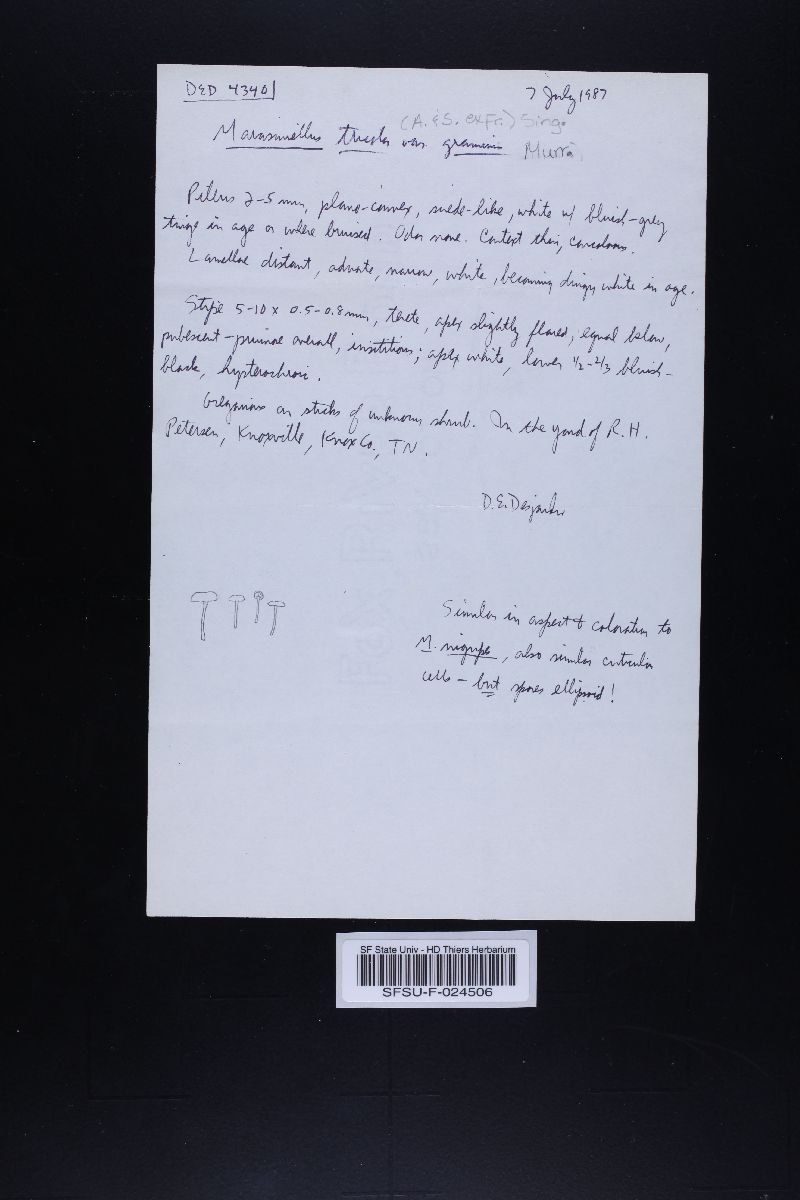 DED 4340
7 July 1987
(A. & S. ex Fr.) Sing.
Marasmiellus tricolor var. graminis Murr.
Pileus 2-5 mm, plano-convex, suede-like, white w/ bluish-grey
tinge in age or where bruised. Odor none. Context thin, concolorous.
Lamellae distant, adnate, narrow, white, becoming dingy white in age.
Stipe 5-10 x 0.5-0.8 mm, terete, apex slightly flared, equal below,
pubescent-pruinose overall, insititious; apex white, lower 1/2-2/3 bluish-
black,
Gregarious on sticks of unknown shrub. In the yard of R.H.
Petersen, Knoxville, Knox Co., TN.
D.E. Desjardin
Similar in aspect & coloration to
M. nigripes, also similar cuticular
cells - but spores ellipsoid!
SF State Univ - HD Thiers Herbarium
SFSU-F-024506